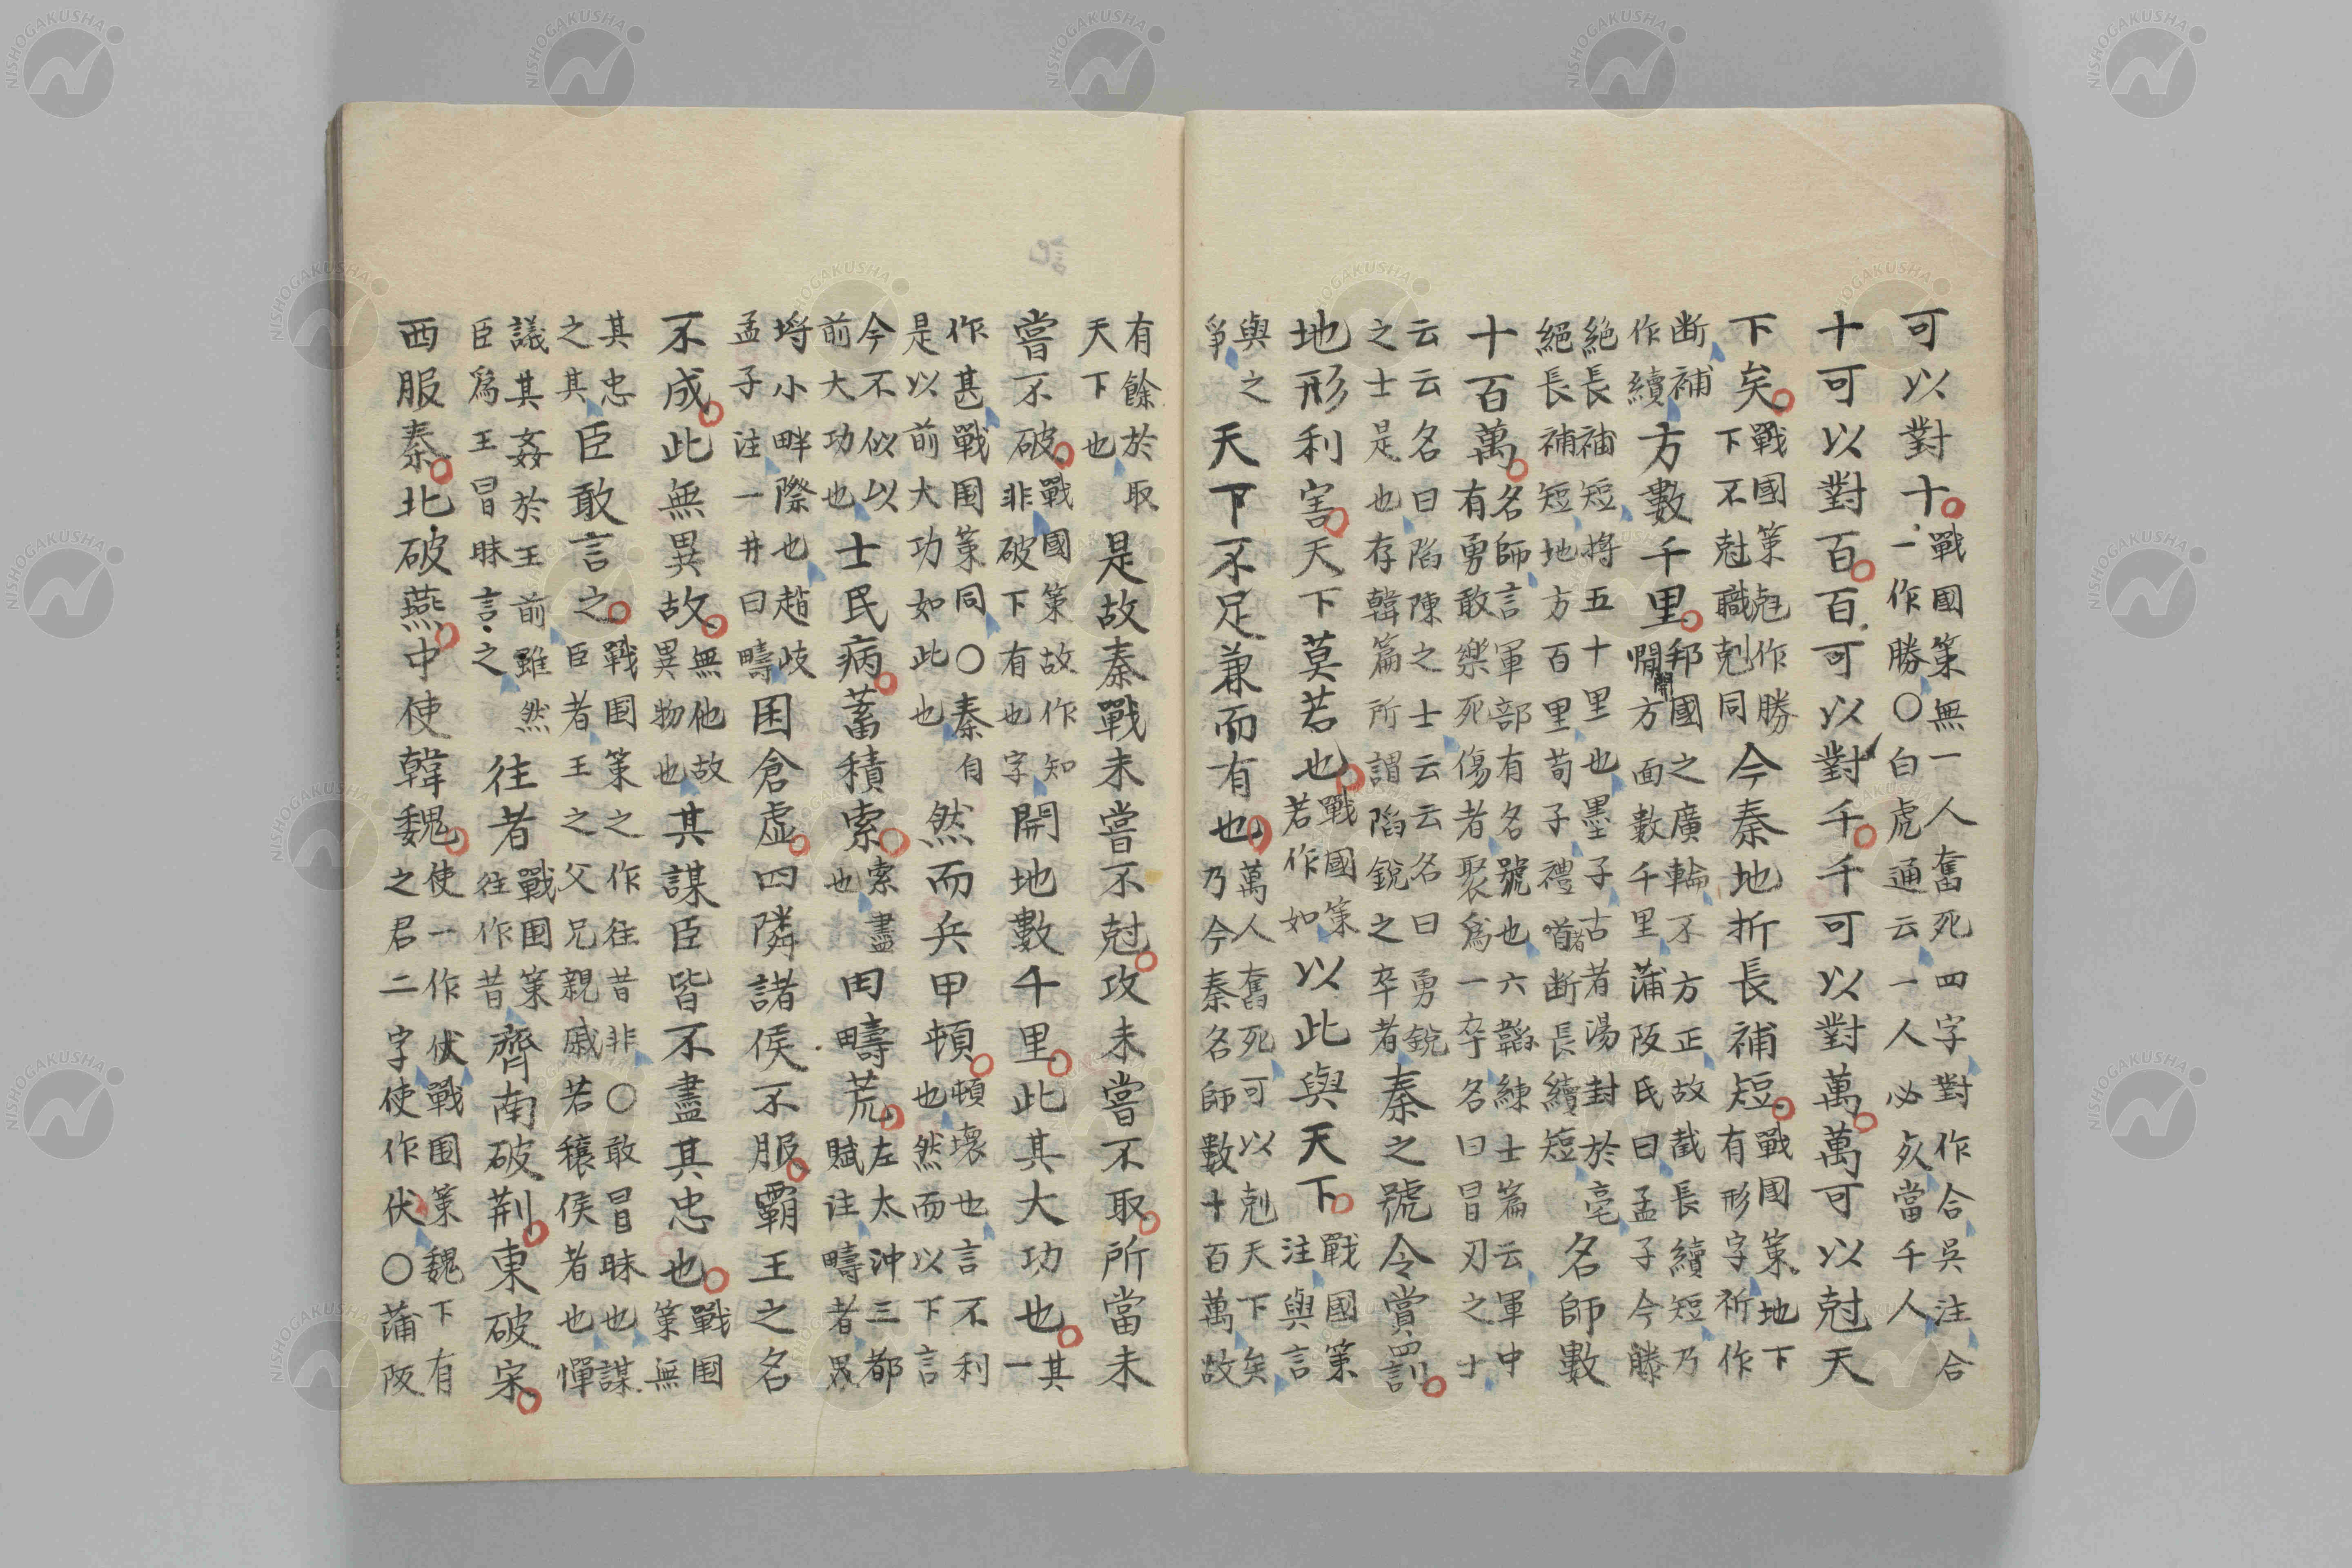 可以對十戰國策無一人奮死四字對作合吳注合
一作勝○白虎通云一人必死當千人
十可以對百百可以對千千可以對萬萬可以尅天
下矣戰國策尅作勝
下不尅職剋同今秦地折長補短戰國策地下
有形字祈作
断補
作續方數千里邦國之廣輪不方正故截長續短乃
方面數千里蒲阪氏曰孟子今滕
絶長補短將五十里也墨子古者湯封於亳
絕長補短地方百里荀子禮者断長續短名師數
十百萬名師言軍部有名號也六韜練士篇云軍中
有勇敢樂死傷者聚爲一卒名曰冒刃之士
云云名曰陷陳之士云云名曰勇銳
之士是也存韓篇所謂陷銳之卒者秦之號令賞罰
地形利害天下莫若也戰國策
若作如以此與天下戰國策
注與言
與之
爭天下不足兼而有也萬人奮死可以剋天下矣
乃今秦名師數十百萬故
有餘於取
天下也是故秦戰未嘗不尅攻未嘗不取所當未
嘗不破戰國策故作知
非破下有也字開地數千里此其大功也其
一
作甚戰国策同○秦自
是以前大功如此也然而兵甲頓頓壞也言不利
也然而以下言
今不似以
前大功也士民病蓄積索索盡
也田疇荒左太沖三都
賦注疇者界
埒小畔際也趙岐
孟子注一井曰疇囷倉虚四隣諸侯不服霸王之名
不成此無異故無他故
異物也其謀臣皆不盡其忠也戰国
策無
其忠
之其臣敢言之戰国策之作往昔非○敢冒昧也謀
臣者王之父兄親戚若穰侯者也憚
議其姦於王前雖然
臣爲王冒昧言之往者戰国策
往作昔齊南破荆東破宋
西服秦北破燕中使韓魏使一作伏戰国策魏下有
之君二字使作伏○蒲阪